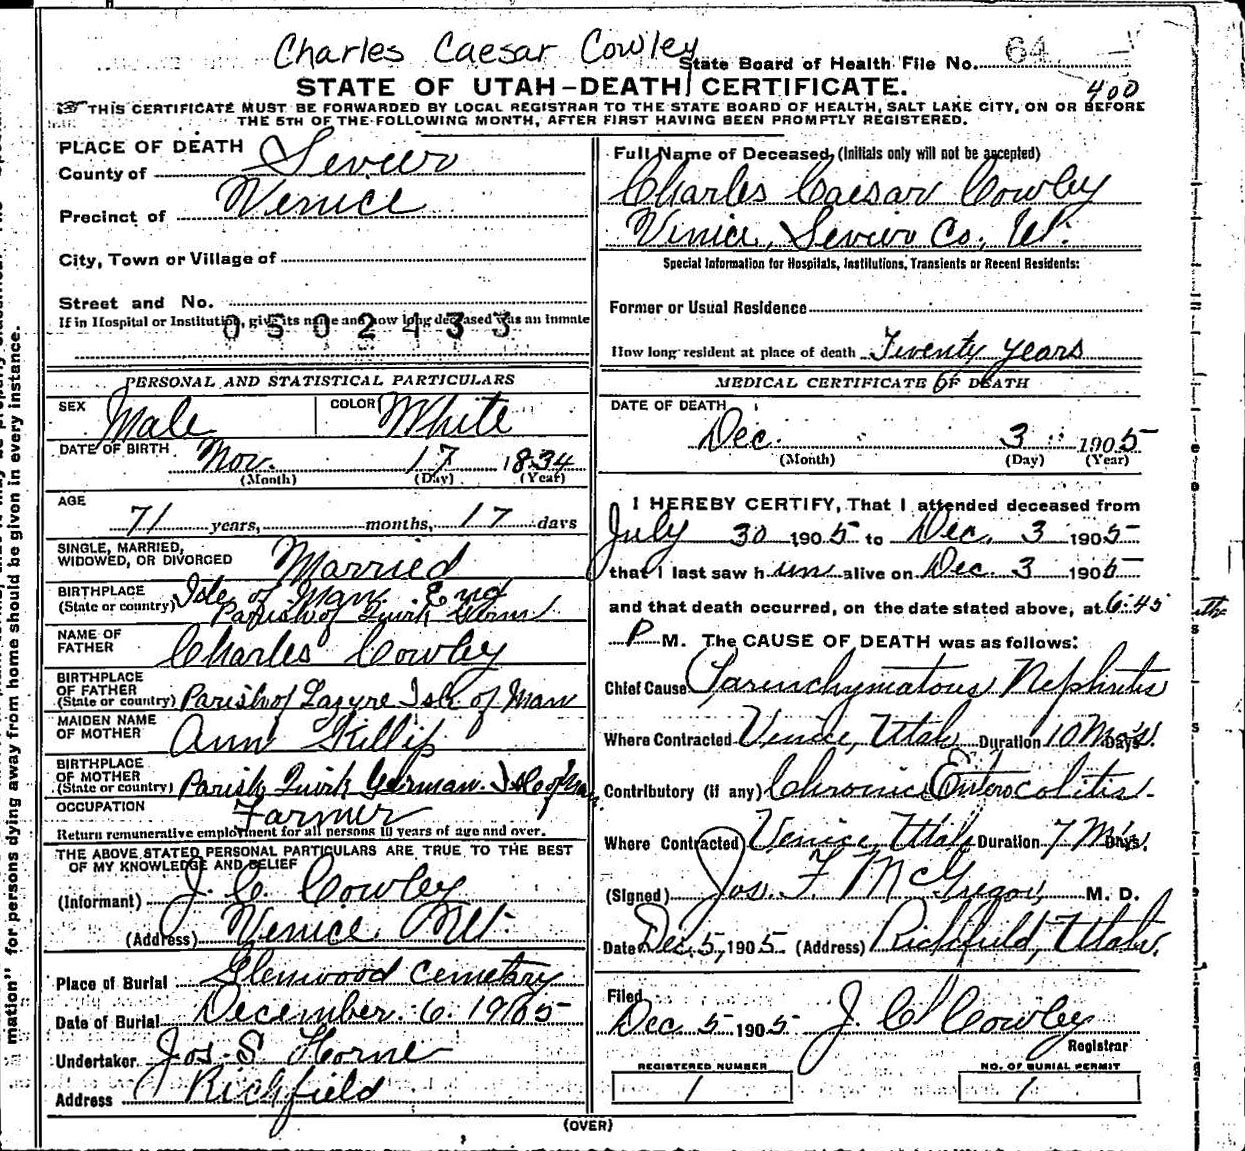 Charles Caesar Cowley
State Board of Health File No. 64
400
STATE OF UTAH—DEATH CERTIFICATE.
THIS CERTIFICATE MUST BE FORWARDED BY LOCAL REGISTRAR TO THE STATE BOARD OF HEALTH, SALT LAKE CITY, ON OR BEFORE
THE 5TH OF THE FOLLOWING MONTH, AFTER FIRST HAVING BEEN PROMPTLY REGISTERED.
PLACE OF DEATH
County of Sevier
Precinct of Venice
City, Town or Village of
Street and No.
If in Hospital or Institution, give its name and how long deceased was an inmate
0502433
PERSONAL AND STATISTICAL PARTICULARS
SEX Male COLOR White
DATE OF BIRTH Nov. 17 1834
(Month) (Day) (Year)
AGE 71 years, months, 17 days
SINGLE, MARRIED,
WIDOWED, OR DIVORCED Married
BIRTHPLACE
(State or country) Isle of Man Eng
Parish of Quirk Germ
NAME OF
FATHER Charles Cowley
BIRTHPLACE
OF FATHER
(State or country) Parish of Lazyre Isle of Man
MAIDEN NAME
OF MOTHER Ann Killip
BIRTHPLACE
OF MOTHER
(State or country) Parish Quirk German. Isle of Man
OCCUPATION Farmer
Return remunerative employment for all persons 10 years of age and over.
THE ABOVE STATED PERSONAL PARTICULARS ARE TRUE TO THE BEST
OF MY KNOWLEDGE AND BELIEF
(Informant) J. C. Cowley
(Address) Venice Ut.
Place of Burial Glenwood Cemetary
Date of Burial December. 6. 1905
Undertaker Jos. S Horne
Address Richfield
Full Name of Deceased (Initials only will not be accepted)
Charles Caesar Cowley
Venice, Sevier Co., Ut.
Special Information for Hospitals, Institutions, Transients or Recent Residents:
Former or Usual Residence
How long resident at place of death Twenty years
MEDICAL CERTIFICATE OF DEATH
DATE OF DEATH
Dec. 3 1905
(Month) (Day) (Year)
I HEREBY CERTIFY, That I attended deceased from
July 30 1905 to Dec. 3 1905
that I last saw him alive on Dec. 3 1905
and that death occurred, on the date stated above, at 6:45
P M. The CAUSE OF DEATH was as follows:
Chief Cause Parenchymatous Nephritis
Where Contracted Venice, Utah Duration 10 Mo's. Days
Contributory (if any) Chronic Enterocolitis.
Where Contracted Venice, Utah Duration 7 Mo's. Days.
(Signed) Jos. F. McGregor, M. D.
Date Dec. 5, 1905 (Address) Richfield, Utah.
Filed
Dec 5 1905 J. C. Cowley
Registrar
REGISTERED NUMBER
1
NO. OF BURIAL PERMIT
1
(OVER)
mation" for persons dying away from home should be given in every instance.